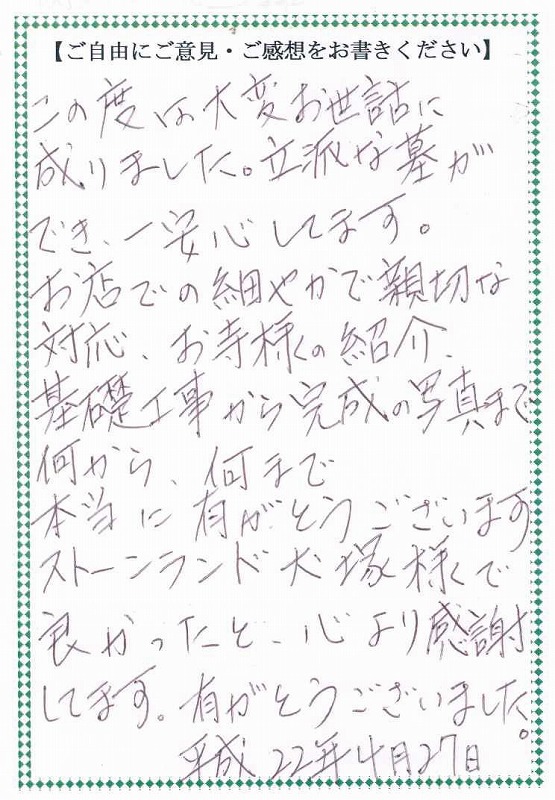 【ご自由にご意見・ご感想をお書きください】
この度は大変お世話に
成りました。立派な墓が
でき、一安心してます。
お店での細やかで親切な
対応、お寺様の紹介、
基礎工事から完成の写真まで
何から、何まで
本当に有がとうございます
ストーンランド犬塚様で
良かったと、心より感謝
してます。有がとうございました。
平成22年4月27日